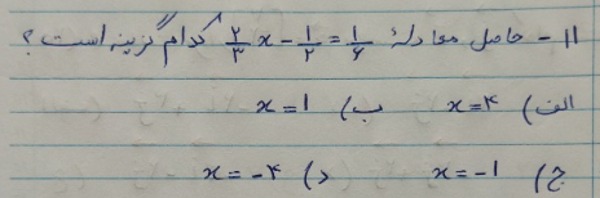 ۱۱- حاصل معادلهٔ ۲/۳ x - ۱/۲ = ۱/۶ کدام گزینه است؟
الف) x = ۴ ب) x = ۱
ج) x = -۱ د) x = -۴